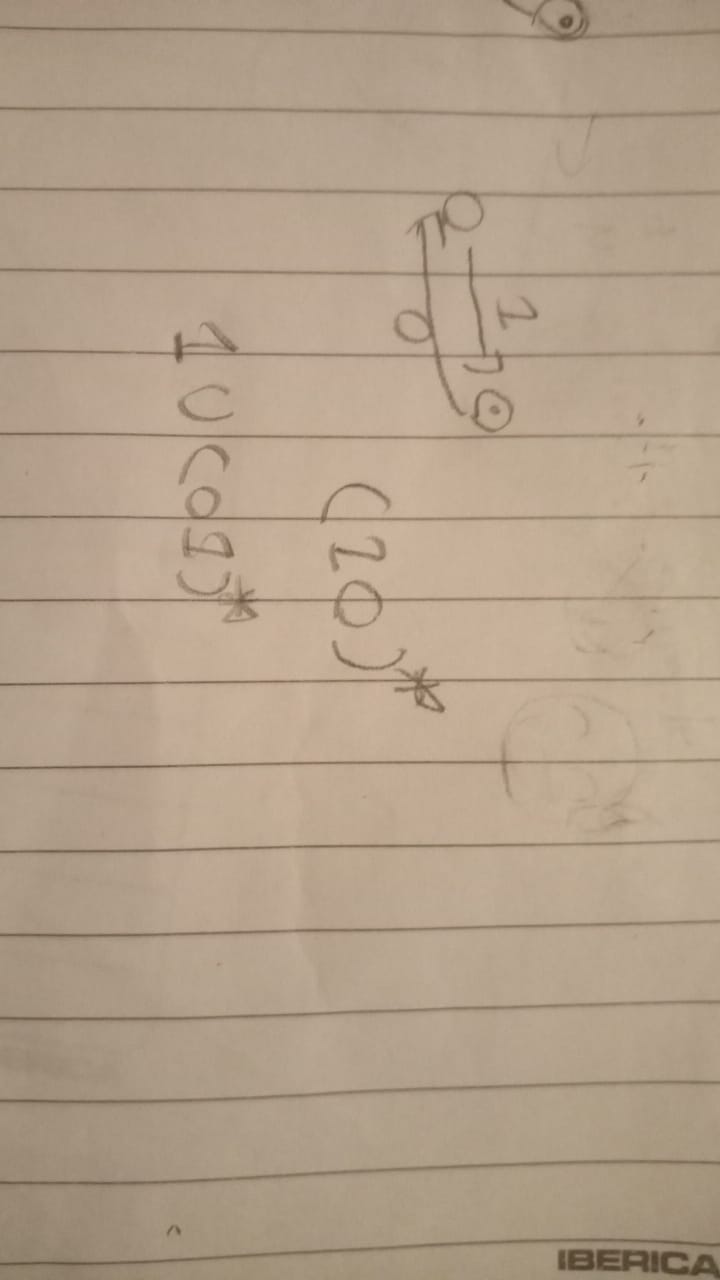 1
0
(10)*
10(01)*
IBERICA